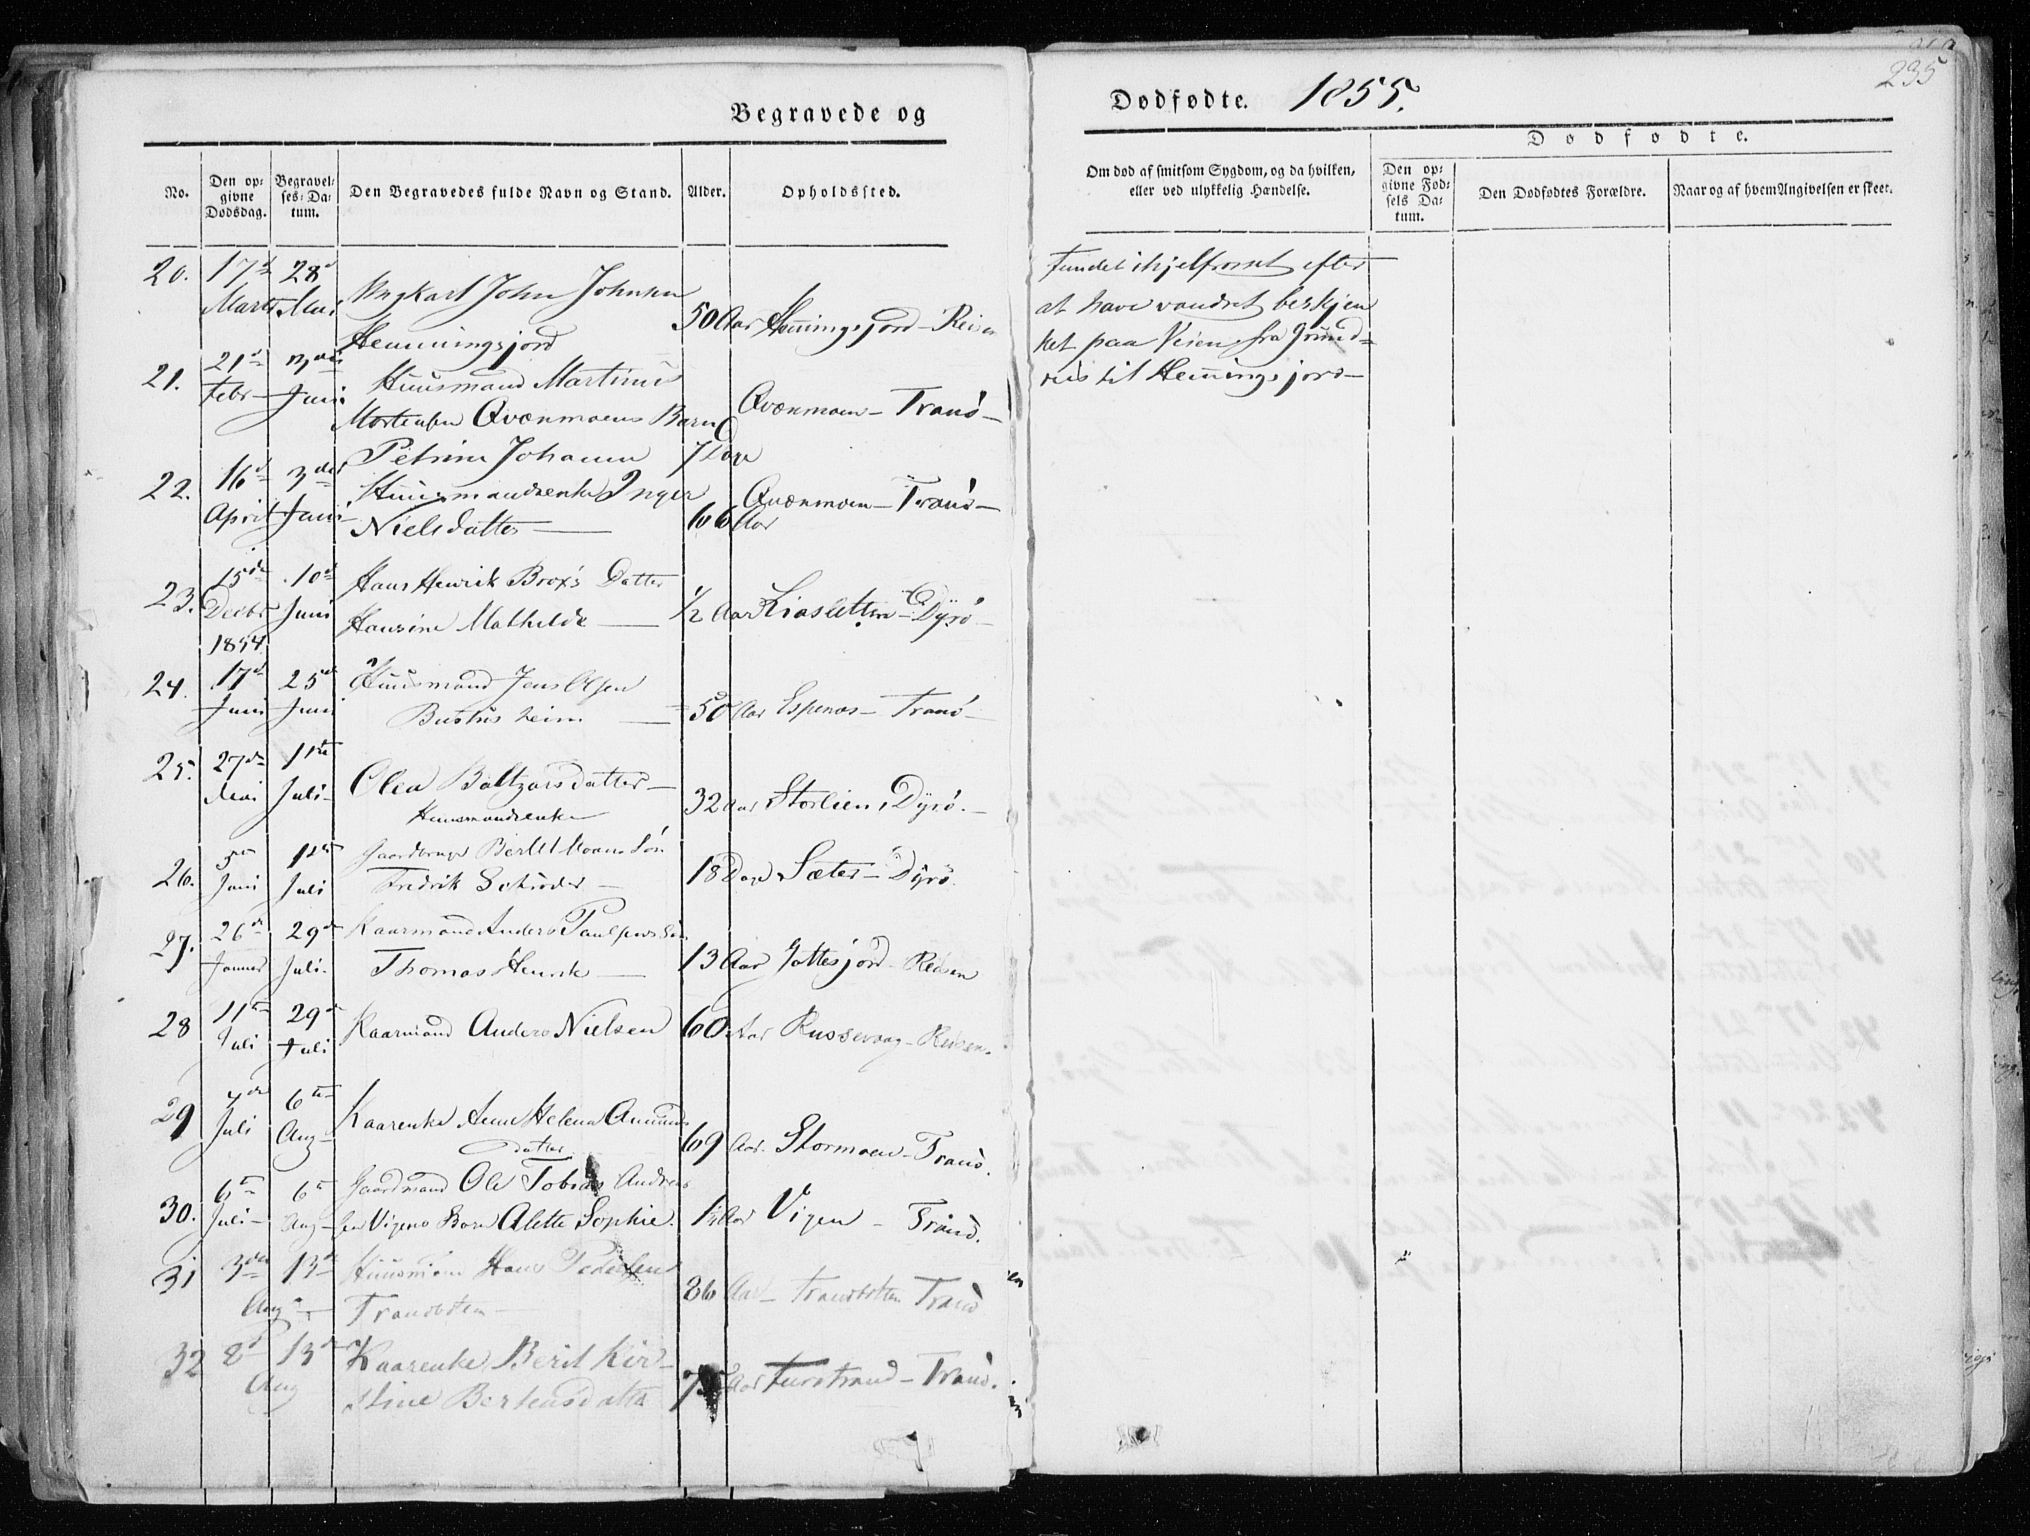 235
Begravede og
Dødfødte. 1855.
No.
Den opgivne Dødsdag.
Begravelses-Datum.
Den Begravedes fulde Navn og Stand.
Alder.
Opholdssted.
Om død af smitsom Sygdom, og da hvilken, eller ved ulykkelig Hændelse.
Dødfødte.
Den opgivne Fødsels Datum.
Den Dødfødtes Forældre.
Naar og af hvem Angivelsen er skeet.
20. 17d 28d
Marts Mai Ungkarl John Johnsen
Hemmingsjord 50 Aar Hemingsjord - Reisen
Fundet ihjelfrosset efter
at have vandret beskjen
ket paa Veien fra Grund
reis til Hemingsjord
21. 21d 3die Huusmand Martinus
Febr Juni Mortensen Qvænmoens Barn Qvænmoen - Tranø
Petrine Johanne 7 Dage
22. 16d 3die Huusmandsenke Inger Qvænmoen - Tranø
April Juni Nielsdatter 66 Aar
23. 15de 10d Hans Henrik Brox's Datter
Decbr Juni Hansine Mathilde 1/2 Aar Kiosletten - Dyrø
1854
24. 17d 25d Huusmand Jens Olsen
Juni Juni 50 Aar Espenæs - Tranø
25. 27de 1ste Olea Baltzarsdatter
Mai Juli Huusmandsenke 32 Aar Storlien, Dyrø.
26. 5te 1ste Søn
Juni Juli Fredrik Schrøder 18 Dage Sæter - Dyrø.
27. 26de 29d Kaarmand Anders Paulsens Søn
Januar Juli Thomas Henrik 13 Aar Gottesjord - Reisen
28 11te 29d Kaarmand Anders Nielsen 60 Aar Russevaag - Reisen.
Juli Juli
29 7de 6te Kaarenke Anne Helena Amunds
Juli Aug datter 69 Aar. Stormoen - Tranø.
30. 6te 6te Gaardmand Ole Tobias Andrea
Juli Aug sen Vigens Barn Alette Sophie. Aar Vigen - Tranø.
31 3die 13de Huusmand Hans Pedersen
Aug Tranbotten 86 Aar Tranbotten Tranø
32 8d 13d Kaarenke Berit Kir
Aug stine Bertheusdatter Aar Furstrand - Tranø.